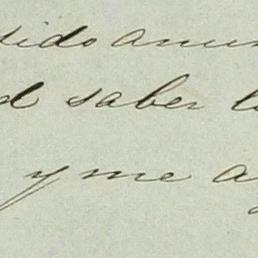 sido anun
d saber l
y me a